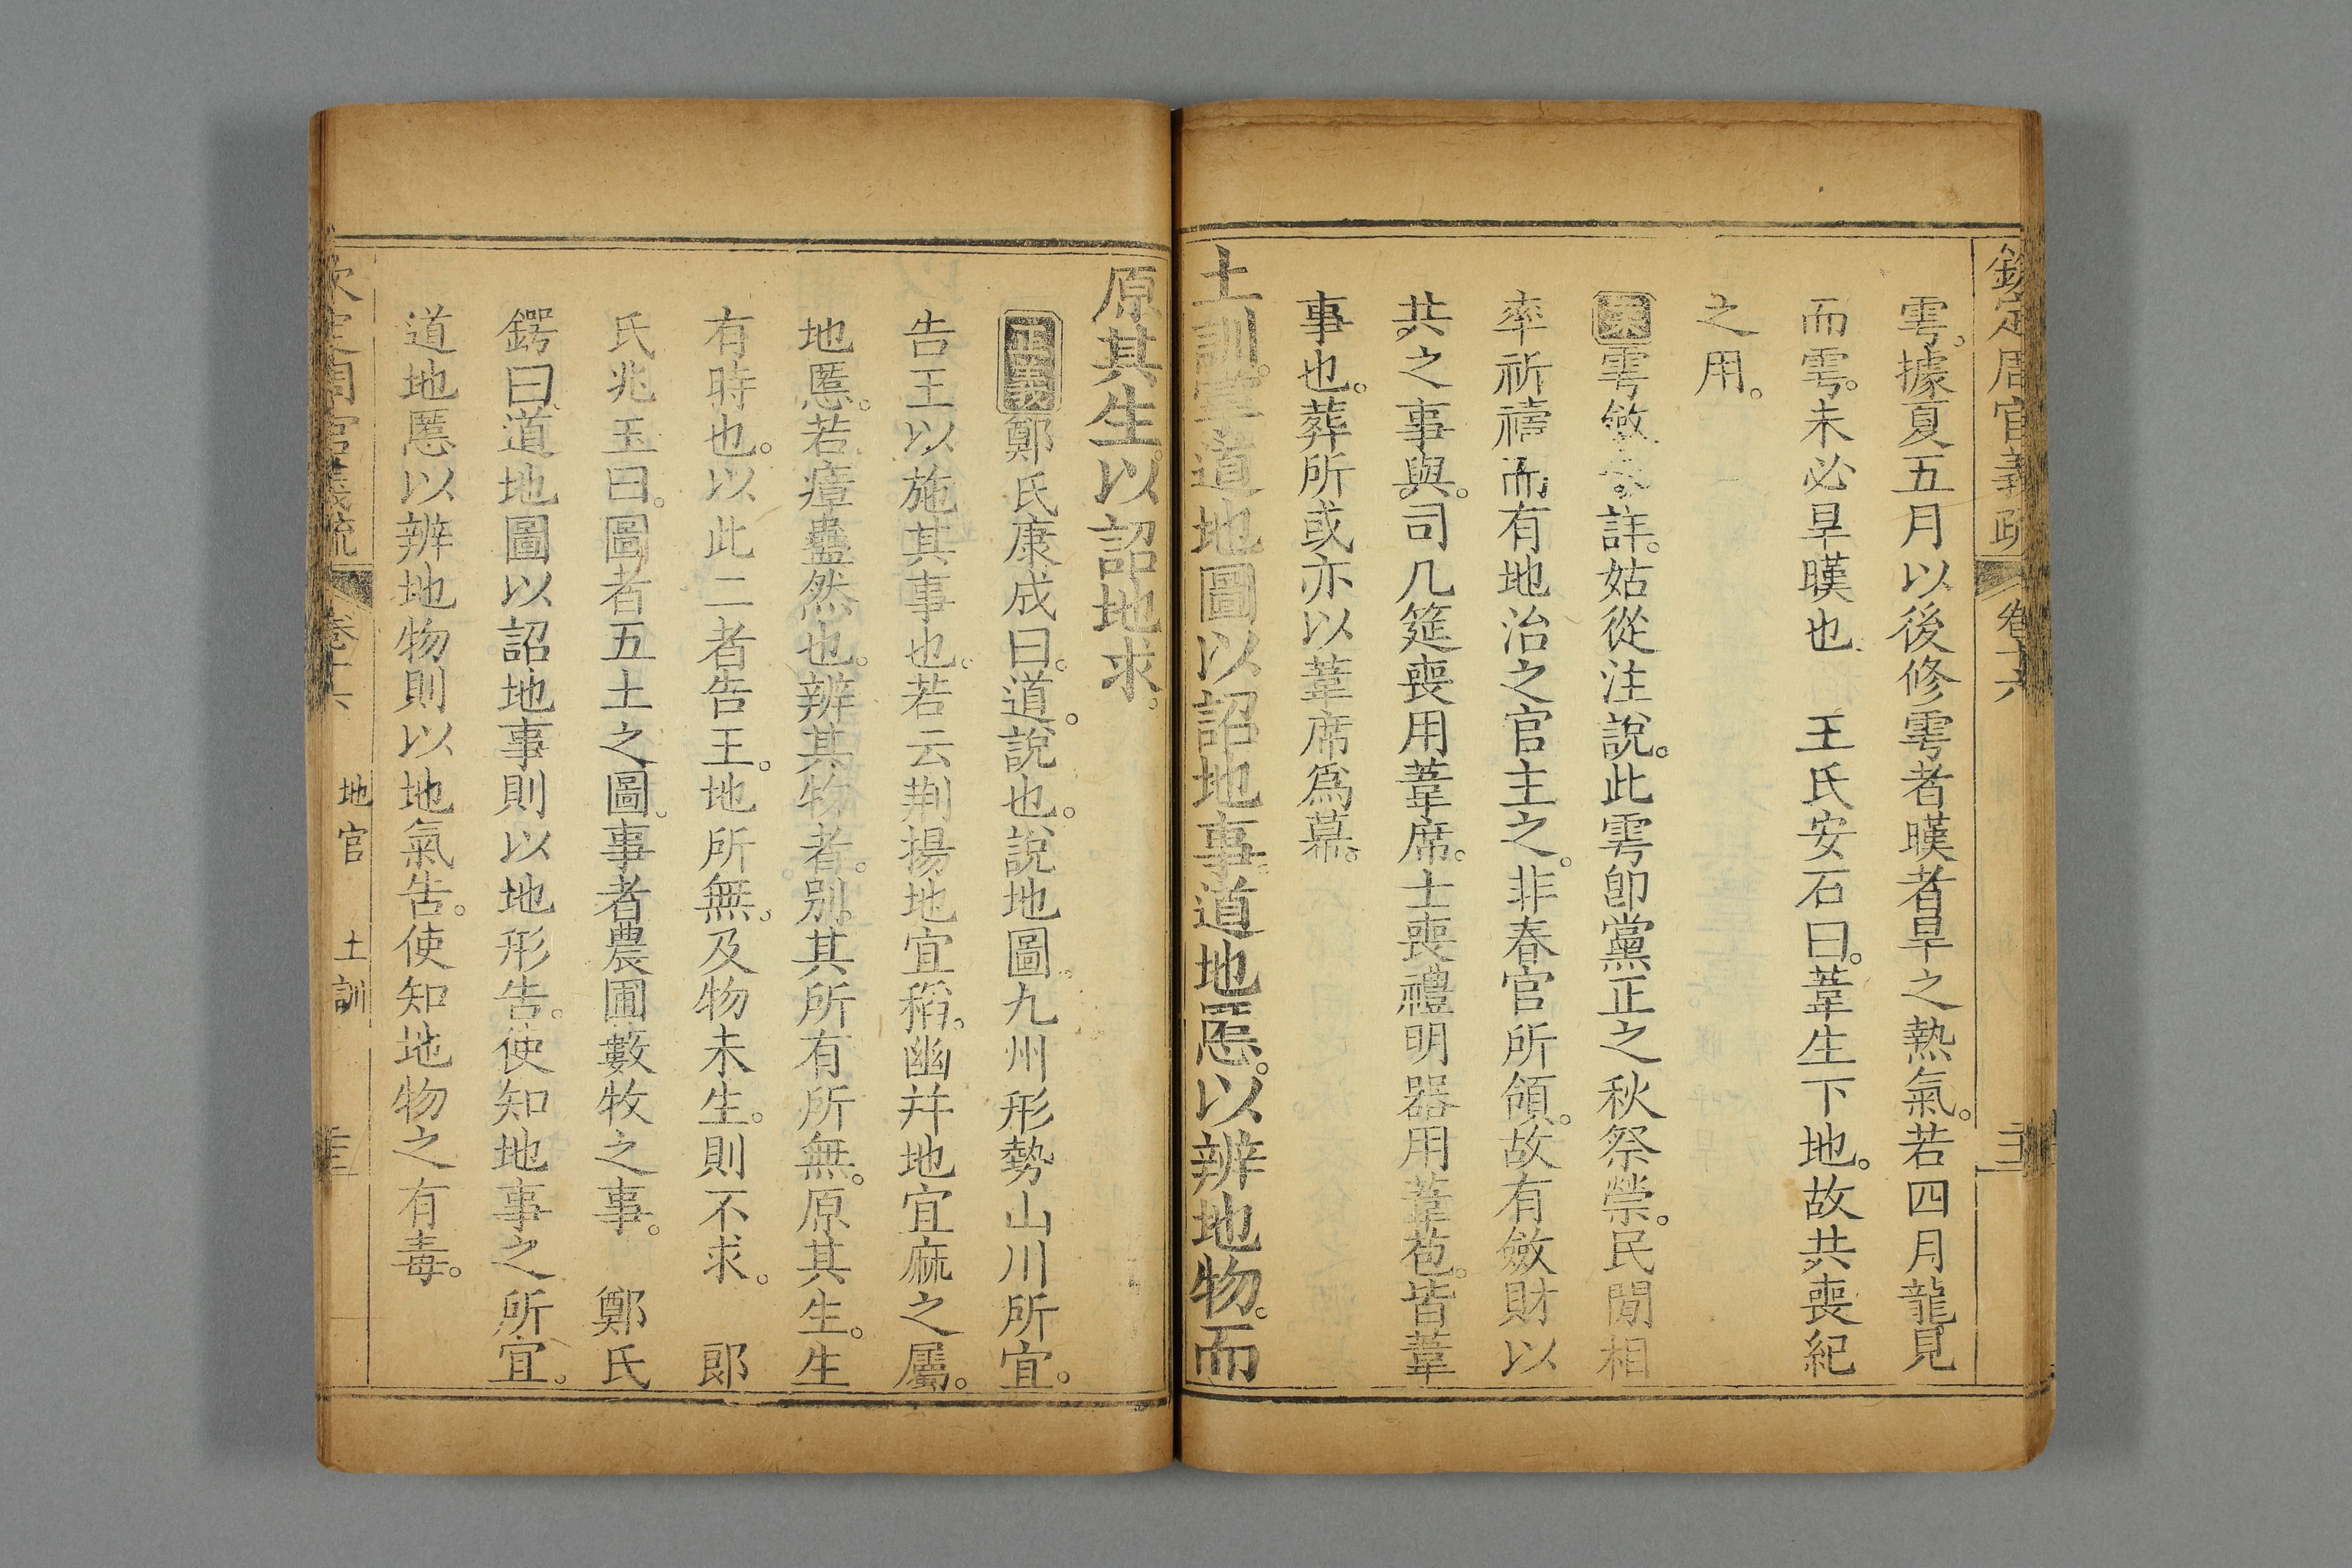 欽定周官義疏 卷十六
雩。據夏五月以後修雩者暵者旱之熱氣。若四月龍見
而雩。未必旱暵也 王氏安石曰。葦生下地。故共喪紀
之用。
案雩斂 詳。姑從注說。此雩卽黨正之秋祭禜。民閒相
率祈禱而有地治之官主之。非春官所領。故有斂財以
共之事與。司几筵喪用葦席。士喪禮明器用葦苞。皆葦
事也。葬所或亦以葦席爲幕。
土訓。掌道地圖以詔地事。道地慝。以辨地物。而
原其生。以詔地求。
正義鄭氏康成曰。道。說也。說地圖。九州形勢山川所宜。
告王以施其事也。若云荆揚地宜稻。幽幷地宜麻之屬。
地慝。若瘴蠱然也。辨其物者。別其所有所無。原其生。生
有時也。以此二者告王。地所無。及物未生。則不求。 鄭
氏兆玉曰。圖者五土之圖。事者農圃藪牧之事。 鄭氏
鍔曰。道地圖以詔地事則以地形告。使知地事之所宜。
道地慝以辨地物則以地氣告。使知地物之有毒。
欽定周官義疏 卷十六 地官 土訓